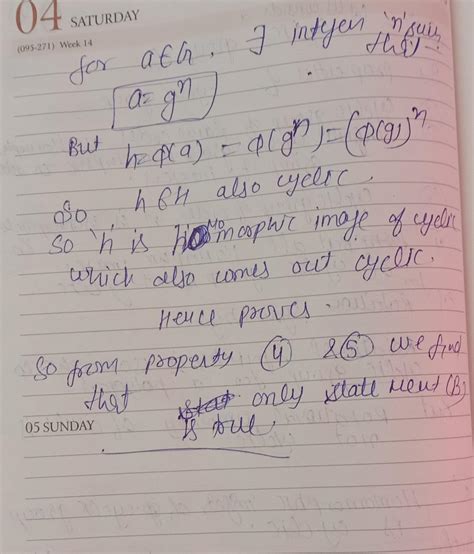 04 SATURDAY
(095-271) Week 14
for a∈G, ∃ integer 'n' such
that
a = gⁿ
But h = φ(a) = φ(gⁿ) = (φ(g))ⁿ
So, h∈H also cyclic.
So 'h is HOMOmorphic image of cyclic
which also comes out cyclic.
Hence proves.
So from property ④ & ⑤ we find
that only statement (B)
05 SUNDAY
is true